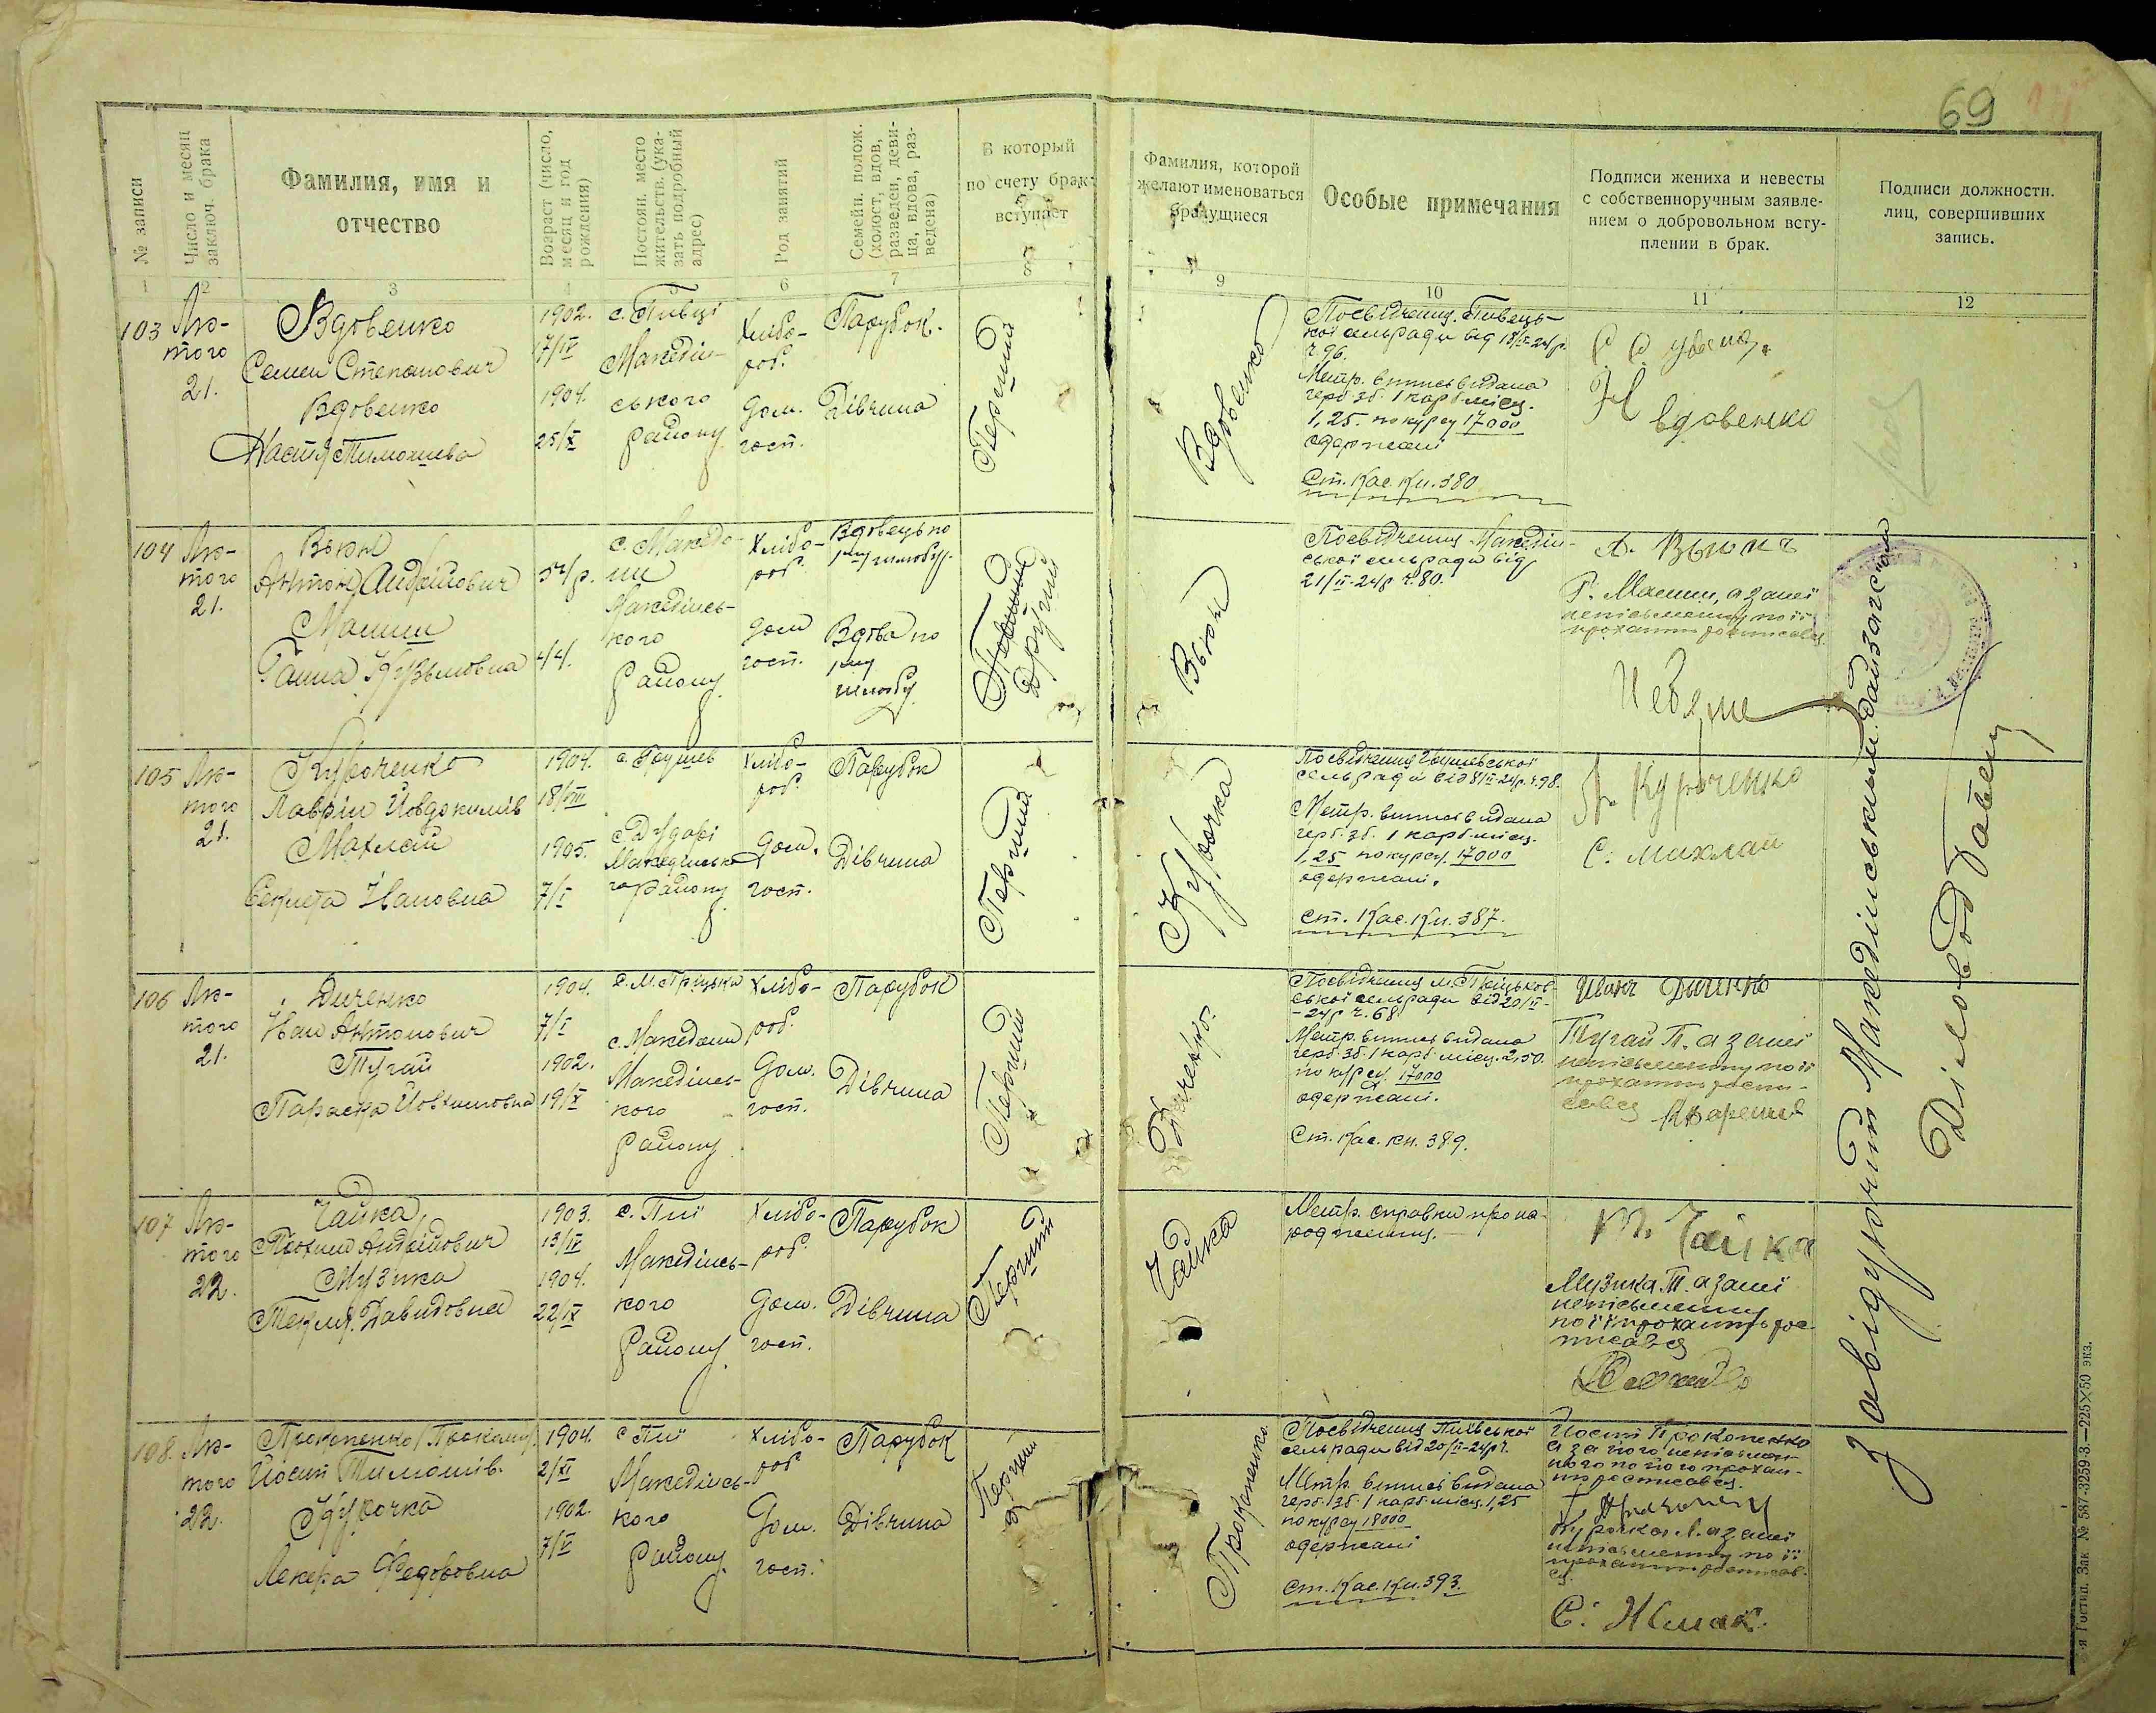 69
№ записи
Число и месяц заключ. брака
Фамилия, имя и
отчество
Возраст (число, месяц и год рождения)
Постоян. место жительств. (указать подробный адрес)
Род занятий
Семейн. полож. (холост, вдов, разведен, девица, вдова, разведена)
В который
по счету брак
вступает
Фамилия, которой
желают именоваться
брачущиеся
Особые примечания
Подписи жениха и невесты
с собственноручным заявле-
нием о добровольном всту-
плении в брак.
Подписи должностн.
лиц, совершивших
запись.
1 2 3 4 5 6 7 8 9 10 11 12
103 Лю-
того
21.
Вдовенко
Семен Степанович
Вдовенко
Настя Тимохиева
1902.
7/IV
1904.
25/X
с. Пивці
Македін-
ського
району
Хлібо-
роб.
дом.
госп.
Парубок.
Дівчина
Перший
Вдовенко
Посвідчення Пивець-
кої сельради від 18/II-24р.
ч. 96.
Метр. виписъ видана
герб. зб. 1 карб. місц.
1,25. по курсу 17000
одержані
Ст. Кас. Кн. 380
Н Вдовенко
104 Лю-
того
21.
Вьюн
Антон Андрійович
Ганна Кузьмовна
44.
с. Македо-
ни
Македінсь-
кого
району
Хлібо-
роб.
дом
госп.
Вдовець по
1му шлюбу.
Вдова по
1му
шлюбу
Другий
Вьюн
Посвідчення Македін-
ської сельради від
21/II-24р ч. 80.
А. Вьюнъ
а замісто
неписьменну по її
проханню росписавсь
105 Лю-
того
21.
Курченко
Лаврін Йовдокимів
Махлай
Секлета Івановна
1904.
18/VIII
1905.
7/I
с. Грушів
с. Дударі
Македінсько
го району
Хлібо-
роб.
Дом.
госп.
Парубок
Дівчина
Перший
Посвідчення Грушевської
сельради від 8/II-24р. ч. 98.
Метр. виписъ видана
герб. зб. 1 карб. місц.
1,25 по курсу 17000
одержані.
ст. Кас. Кн. 387.
С. Махлай
106 Лю-
того
21.
Диченко
Іван Антонович
Тугай
Параска Йовхимовна
1904.
7/I
1902.
19/X
с. М. Пріцьки
с. Македони
Македінсь-
кого
району
Хлібо-
роб.
Дом.
госп.
Парубок
Дівчина
Перший
Диченко.
Посвідчення М. Пріцьков-
ської сельради від 20/II-
-24р ч. 68.
Метр. виписъ видана
герб. зб. 1 карб. місц. 2,50.
по курсу 17000
одержані.
Ст. Кас. кн. 389.
Иванъ Дыченко
Тугай П. а за неї
неписьменну по її
проханню роспи-
савсь
107 Лю-
того
22.
Чайка
Прохим Андрійович
Музика
Текля Давидовна
1903.
13/IV
1904.
22/IX
с. Пиї
Македінсь-
кого
району
Хлібо-
роб.
Дом.
госп.
Парубок
Дівчина
Перший
Чайка
Метр. справки про на-
родження.
П. Чайка
Музика Т. а за неї
неписьменну
по її проханню рос-
писавсь
108. Лю-
того
22.
Прокопенко
Йосип Тимошів.
Курочка
Лекера Федоровна
1904.
2/XI
1902.
7/V
с Пиї
Македінсь-
кого
району.
Хлібо-
роб
Дом.
госп.
Парубок
Дівчина
Перший
Прокопенко
Посвідчення Пиївської
сельради від 20/II-24р ч.
Метр. виписъ видана
герб. зб. 1 карб. місц. 1,25
по курсу 18000
одержані
ст. Кас. Кн. 393.
Йосип Прокопенко
а за його неписьмен-
ного по його прохан-
ню росписавсь.
Курочка Л. а за неї
неписьменну по її
проханню росписав-
сь.
Завідуючий Македінським Райзагс"ом
Діловод
Зак. № 587-3259 3.—225×50 экз.